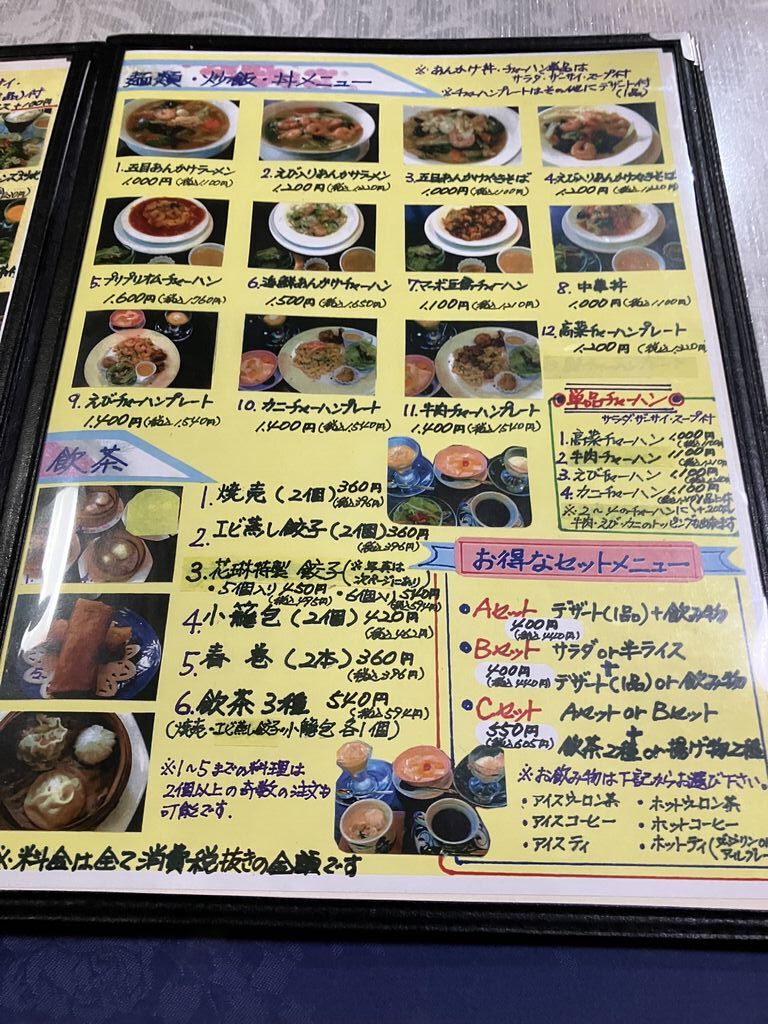 麺類・炒飯・丼メニュー
※あんかけ丼・チャーハン単品は
サラダ・ザーサイ・スープ付
※チャーハンプレートはその他にデザート付
(1品)
1.五目あんかけラーメン
1.000円(税込1100円)
2.えび入りあんかけラーメン
1.200円(税込1320円)
3.五目あんかけやきそば
1.000円(税込1100円)
4.えび入りあんかけやきそば
1.200円(税込1320円)
5.プリプリオムチャーハン
1.600円(税込1760円)
6.海鮮あんかけチャーハン
1.500円(税込1650円)
7.マーボ豆腐チャーハン
1.100円(税込1210円)
8.中華丼
1.000円(税込1100円)
9.えびチャーハンプレート
1.400円(税込1540円)
10.カニチャーハンプレート
1.400円(税込1540円)
11.牛肉チャーハンプレート
1.400円(税込1540円)
12.高菜チャーハンプレート
1.200円(税込1320円)
単品チャーハン
サラダ・ザーサイ・スープ付
1.高菜チャーハン 1.000円
2.牛肉チャーハン 1.100円
3.えびチャーハン 1.100円
4.カニチャーハン 1.100円
※2〜4のチャーハンに+200円
牛肉・えび・カニのトッピングも出来ます
飲茶
1.焼売(2個)360円
(税込396円)
2.エビ蒸し餃子(2個)360円
(税込396円)
3.花琳特製 餃子(※写真は
次ページにあり)
・5個入り450円・6個入り540円
(税込495円) (税込594円)
4.小籠包(2個)420円
(税込462円)
5.春巻(2本)360円
(税込396円)
6.飲茶3種 540円
(税込594円)
(焼売・エビ蒸し餃子・小籠包 各1個)
※1〜5までの料理は
2個以上の奇数の注文も
可能です.
お得なセットメニュー
・Aセット デザート(1品)+飲み物
400円
(税込440円)
・Bセット サラダor半ライス
400円
(税込440円)
+
デザート(1品)or飲み物
・Cセット AセットorBセット
550円
(税込605円)
+
飲茶2種or揚げ物2種
※お飲み物は下記からお選び下さい。
・アイスウーロン茶 ・ホットウーロン茶
・アイスコーヒー ・ホットコーヒー
・アイスティ ・ホットティ
※料金は全て消費税抜きの金額です